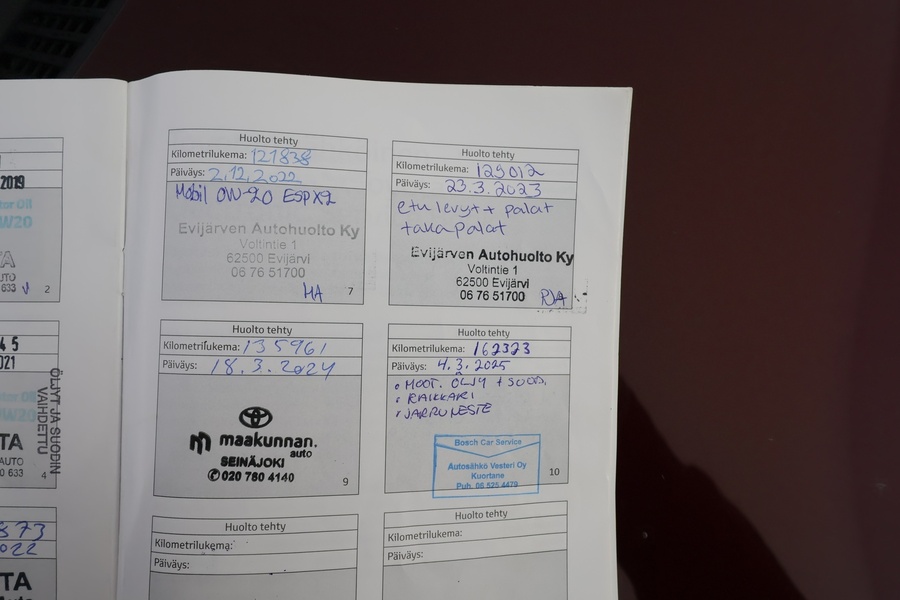 2019
W20
TA
633 2
4 5
021
TA
AUTO
0 633 4
ÖLJYT JA SUODIN
VAIHDETTU
873
022
TA
Huolto tehty
Kilometrilukema: 121838
Päiväys: 2.12.2022
Mobil 0W-20 ESP X2
Evijärven Autohuolto Ky
Voltintie 1
62500 Evijärvi
06 76 51700
MA 7
Huolto tehty
Kilometrilukema: 129012
Päiväys: 23.3.2023
etu levyt + palat
taka palat
Evijärven Autohuolto Ky
Voltintie 1
62500 Evijärvi
06 76 51700
Huolto tehty
Kilometrilukema: 135961
Päiväys: 18.3.2024
maakunnan.
auto
SEINÄJOKI
020 780 4140
9
Huolto tehty
Kilometrilukema: 162323
Päiväys: 4.3.2025
• MOOT. ÖLJY + SUOD.
• RAIKKARI
• JARRUNESTE
Bosch Car Service
Autosähkö Vesteri Oy
Kuortane
Puh. 06 525 4479
10
Huolto tehty
Kilometrilukema:
Päiväys:
Huolto tehty
Kilometrilukema:
Päiväys: